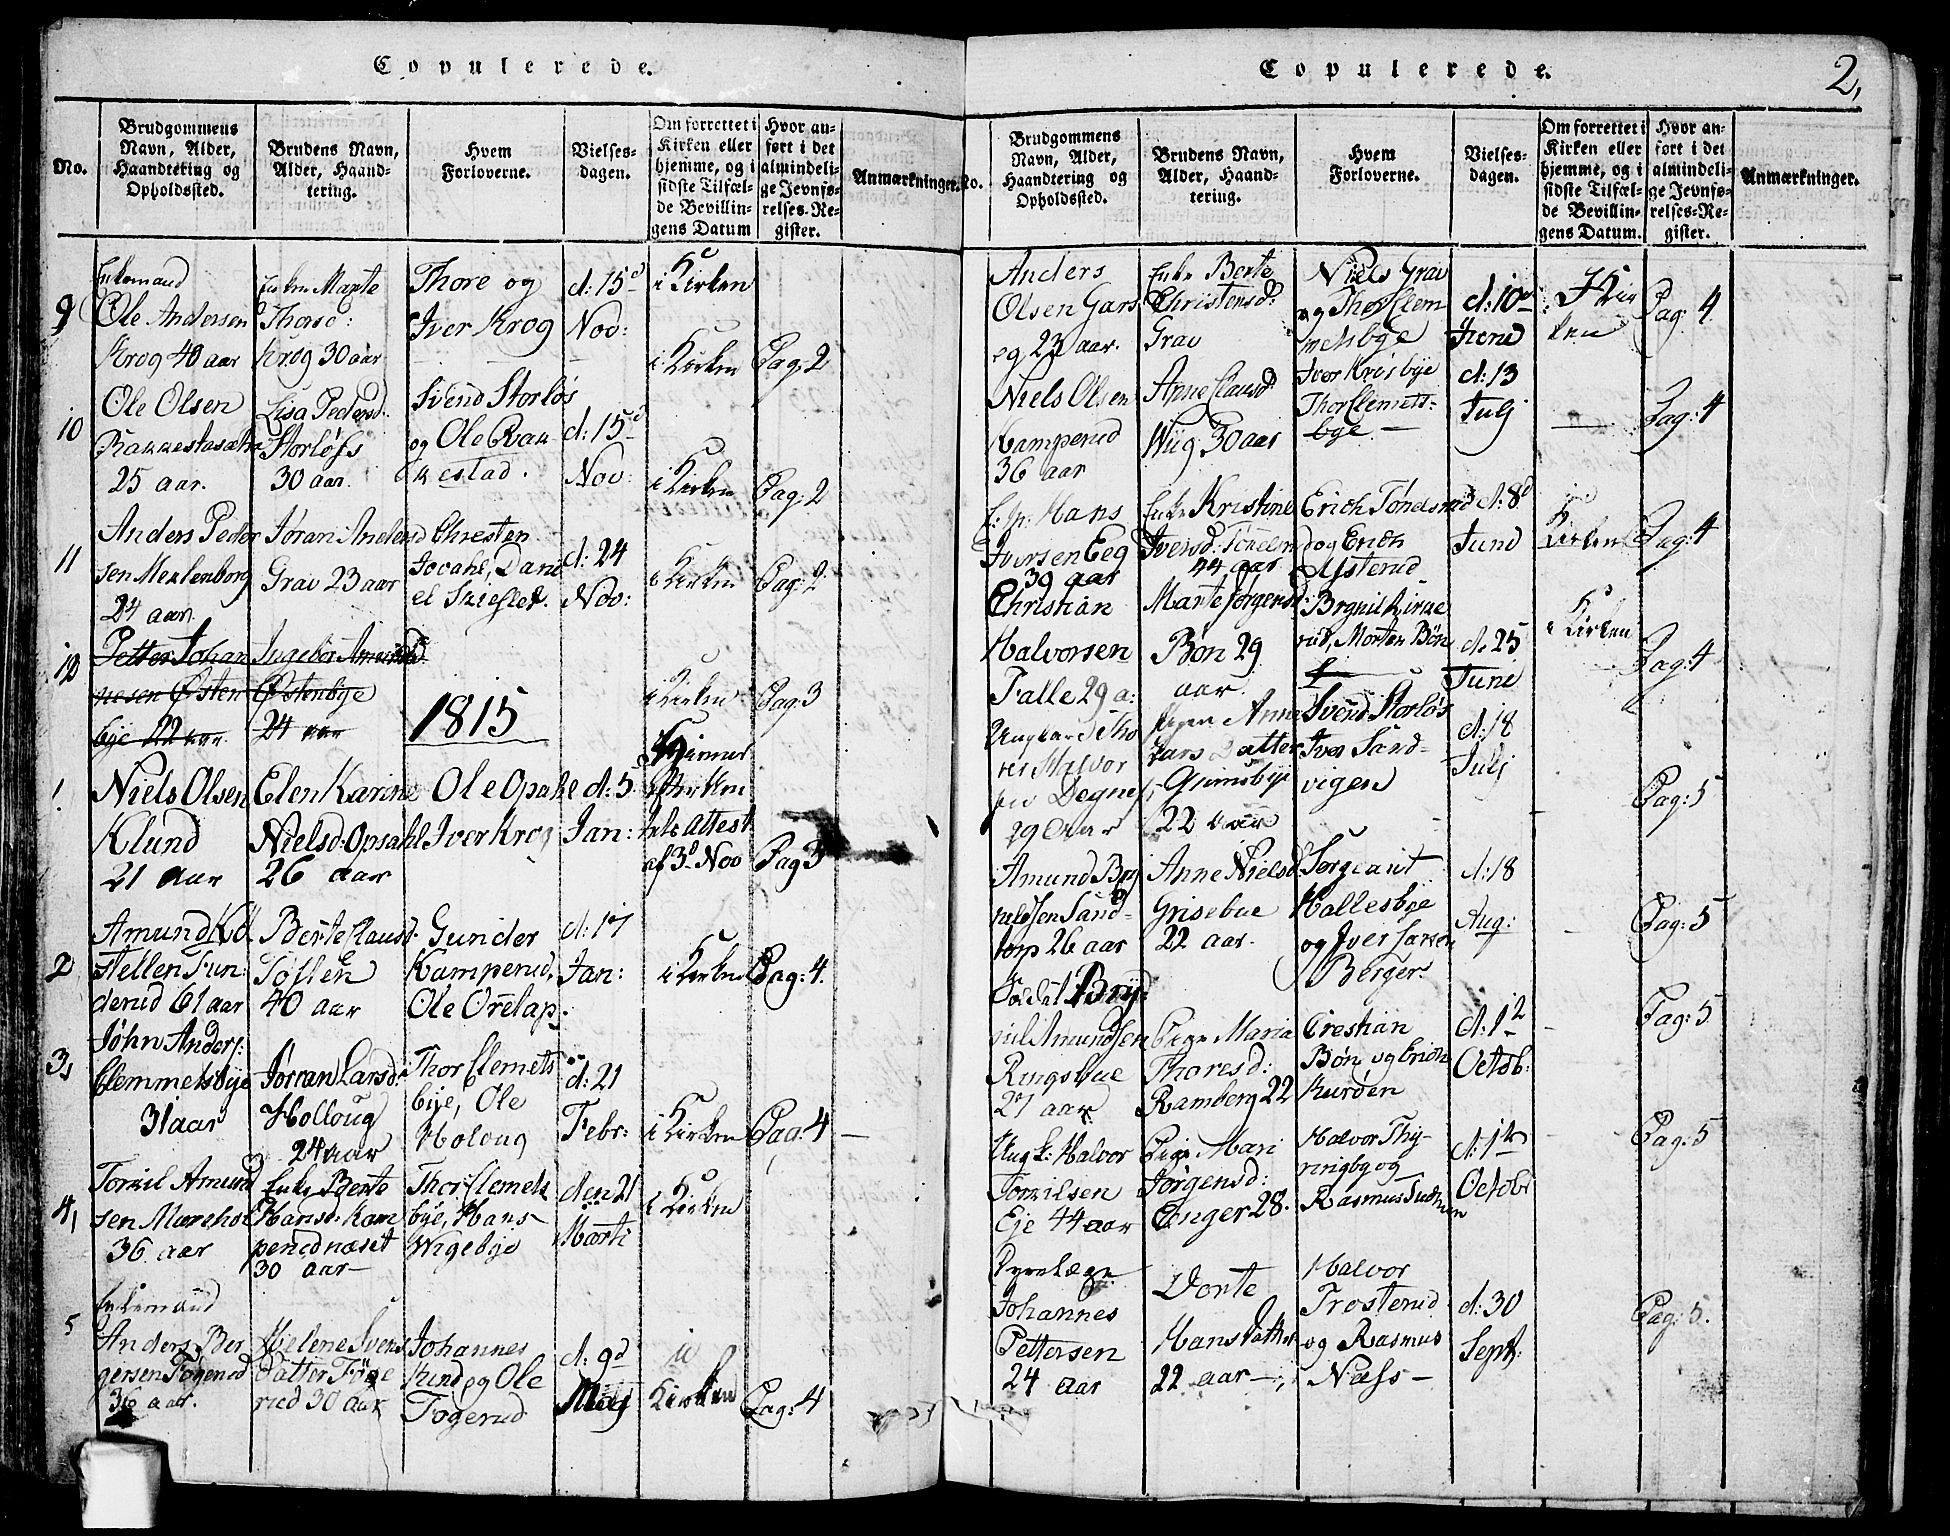 Copulerede.
No.
Brudgommens
Navn, Alder,
Haandtering og
Opholdssted.
Brudens Navn,
Alder, Haand-
tering.
Hvem
Forloverne.
Vielses-
dagen.
Om forrettet i
Kirken eller
hjemme, og i
sidste Tilfæl-
de Bevillin-
gens Datum
Hvor an-
ført i det
almindeli-
ge Jevnfø-
relses-Re-
gister.
Anmærkninger.
9
Enkemand
Ole Andersen
Krog 40 aar
Enken Marte
Thorsd:
Krog 30 aar
Thore og
Iver Krog
d: 15d
Nov:
i Kirken
i Kirken
Pag: 2
10
Ole Olsen
Rakkestasæter
25 aar.
Lisa Pedersd.
Storløss
30 aar.
Svend Storløs
og Ole Rak
kestad.
d: 15d
Nov:
i Kirken
Pag: 2
11
Anders Peder
sen Meklenborg
24 aar.
Jøran Andersd
Grav 23 aar
Chresten
Jovahl, Dani
el Skiefled.
d: 24
Nov:
i Kirken
Pag: 2
12
Petter Johan
nesen Østen
bye 22 aar.
Ingebor Amundsd
Østenbye
24 aar
1815
i Kirken
Pag: 3
1.
Niels Olsen
Klund
21 aar
Elen Karine
Nielsd: Opsahl
26 aar
Ole Opahl
Iver Krog
d: 5
Jan:
Attest
af 3d Nov
Pag 3
2
Amund
derud 61 aar
Berte Clausd.
40 aar
Gunder
Kamperud,
Ole
d: 17
Jan:
i Kirken
Pag: 4.
3,
John Anders:
Clemmetsbye
31 aar
Jørran Larsd:
Holloug
24 aar
Thor Clemets
bye, Ole
Holoug
d: 21
Febr:
i Kirken
Pag: 4
4,
Torkil Amund
sen
36 aar
Enke Berte
Hansd: Kam
perudnæset
30 aar
Thor Clemets
bye, Hans
Wigebye
den 21
Marti
i Kirken
5
Enkemand
Anders Ber
gersen Togerud
36 aar.
Helene Svens
datter
rud 30 aar
Johannes
og Ole
Togerud
d: 9d
Maij
i
Kirken
Pag: 4
Copulerede.
2,
No.
Brudgommens
Navn, Alder,
Haandtering og
Opholdssted.
Brudens Navn,
Alder, Haand-
tering.
Hvem
Forloverne.
Vielses-
dagen.
Om forrettet i
Kirken eller
hjemme, og i
sidste Tilfæl-
de Bevillin-
gens Datum.
Hvor an-
ført i det
almindeli-
ge Jevnfø-
relses-Re-
gister.
Anmærkninger.
Anders
Olsen Gars
eg 23 aar.
Enke Berte
Christensd:
Grav
Niels Grav
og Thor Clem
metsbye
d: 10d
Juni
i Kir
ken
Pag: 4
Niels Olsen
Kamperud
36 aar
Anne Clausd
Wiig 30 aar
Iver Krisbye
Thor Clemets-
bye.
d: 13
Julj
Pag: 4
Hans
Iversen Eeg
39 aar
Enke Kristine
Iversd:
44 aar
Erich
og Erich
Ysterud
d: 8d
Juni
i
Kirken
Pag: 4
Christian
Halvorsen
Falle 29 a:
Marte Jørgensd:
Bøn 29
aar.
Brynil Kirke
rud, Morten Bøn
d: 25
Juni
i Kirken
Pag: 4
Ungkarl Tho
res Halvor
sen Degnes
29 aar
Pigen Anne
Lars Datter
Grimsbye
22 aar
Svend Storløs
Iver Sand-
vigen
d: 18
Julj
Pag: 5
Amund Bry
nildsen Sand-
torp 26 aar
Anne Nielsd
Grisebue
22 aar.
Sergeant
Hallesbye
og Iver
Berger.
d: 18
Aug:
Pag: 5
Soldat Bryn
jul Amundsen
Ringsbue
27 aar
Pige Maria
Thoresd:
Ramberg 22
Crestian
Bøn og Erich
Kurdøn
d: 12
Octob:
Pag: 5
Ungk: Halvor
Torkilsen
Eje 44 aar
Pige Mari
Jørgensd:
Enger 28.
Halvor Thy-
ringby og
Rasmus
d: 12
Octobr
Pag: 5
Johannes
Pettersen
24 aar
Dorte
Hansdatter
22 aar
Halvor
Trosterud
og Rasmus
Næss
d: 30
Sept:
Pag: 5.